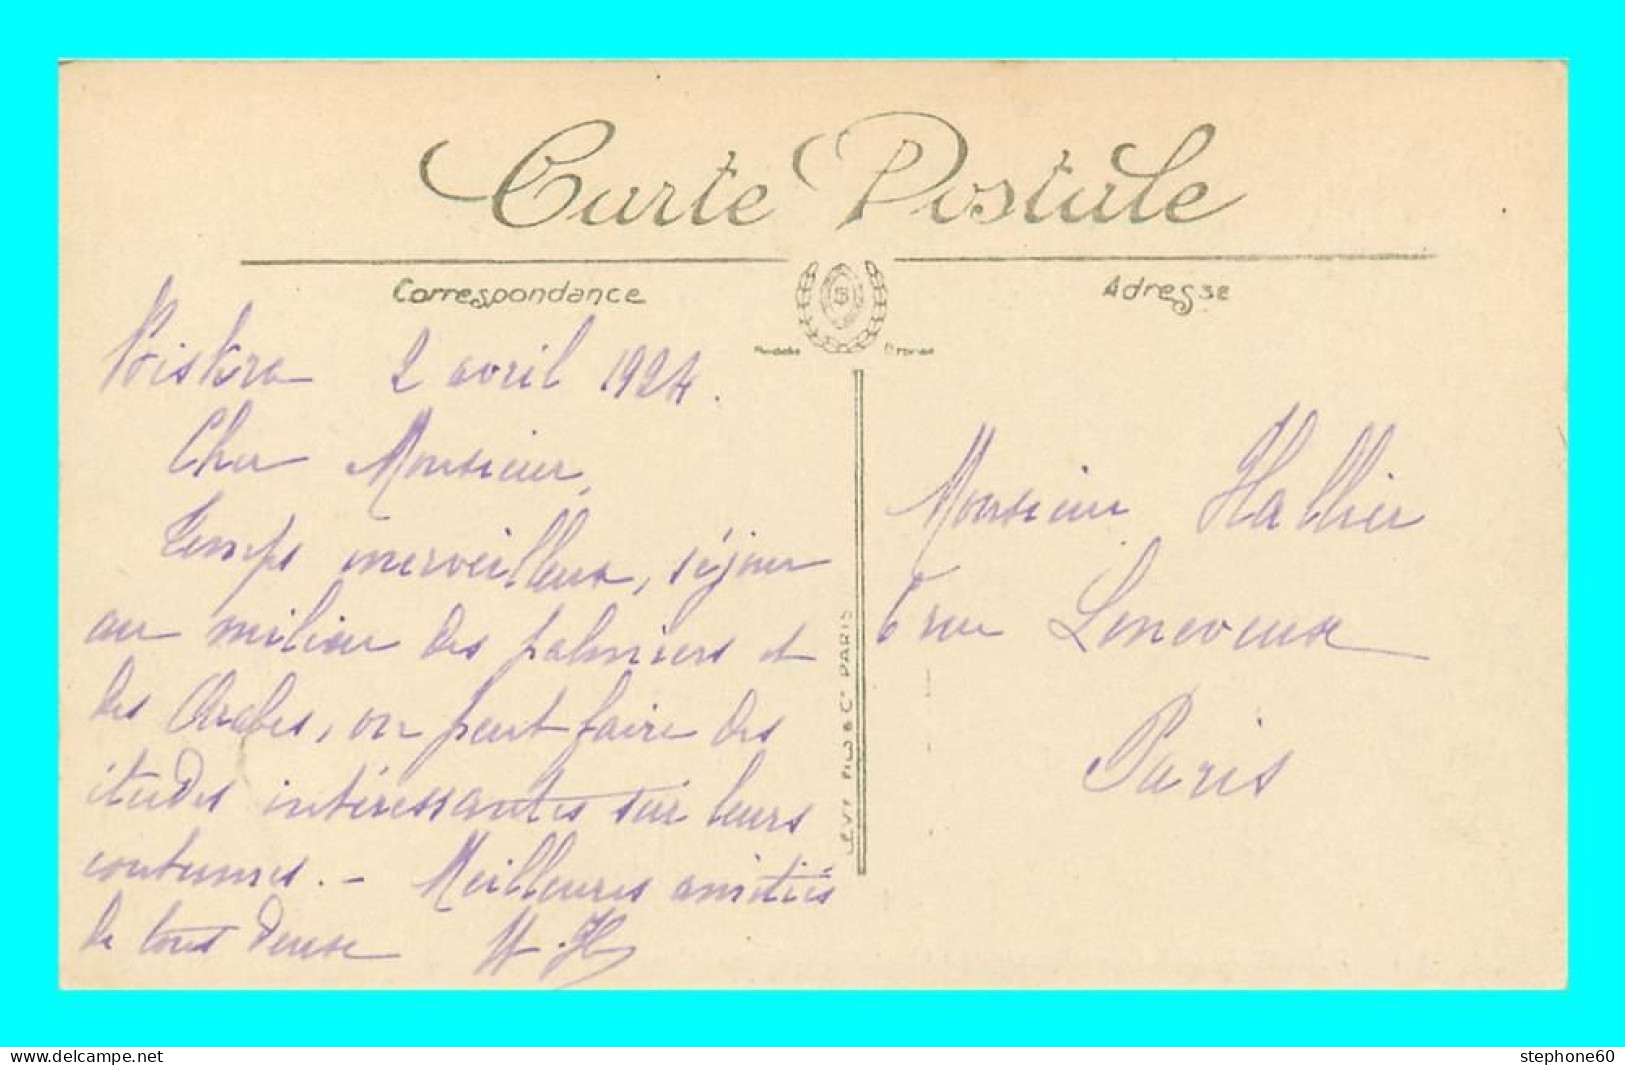 Carte Postale
Correspondance
Adresse
Biskra 2 avril 1924.
Cher Monsieur,
Temps merveilleux, séjour
au milieu des palmiers et
des Arabes, on peut faire des
études intéressantes sur leurs
coutumes. - Meilleures amitiés
de tous deux
LEVY FILS & Cie PARIS
Monsieur Hallier
6 rue Leneveux
Paris
www.delcampe.net
stephone60